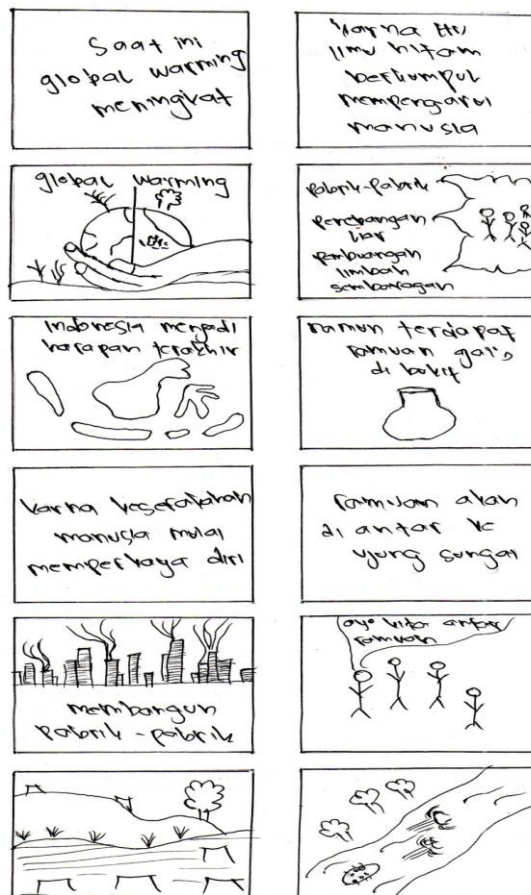 Saat ini
global warming
meningkat
global warming
Indonesia menjadi
harapan terakhir
karna keserakahan
manusia mulai
memperkaya diri
membangun
pabrik-pabrik
karna itu
ilmu hitam
berkumpul
mempengarui
manusia
pabrik-pabrik
penebangan
liar
pembuangan
limbah
sembarangan
namun terdapat
ramuan
di bukit
ramuan akan
di antar ke
ujung sungai
ayo kita antar
ramuan